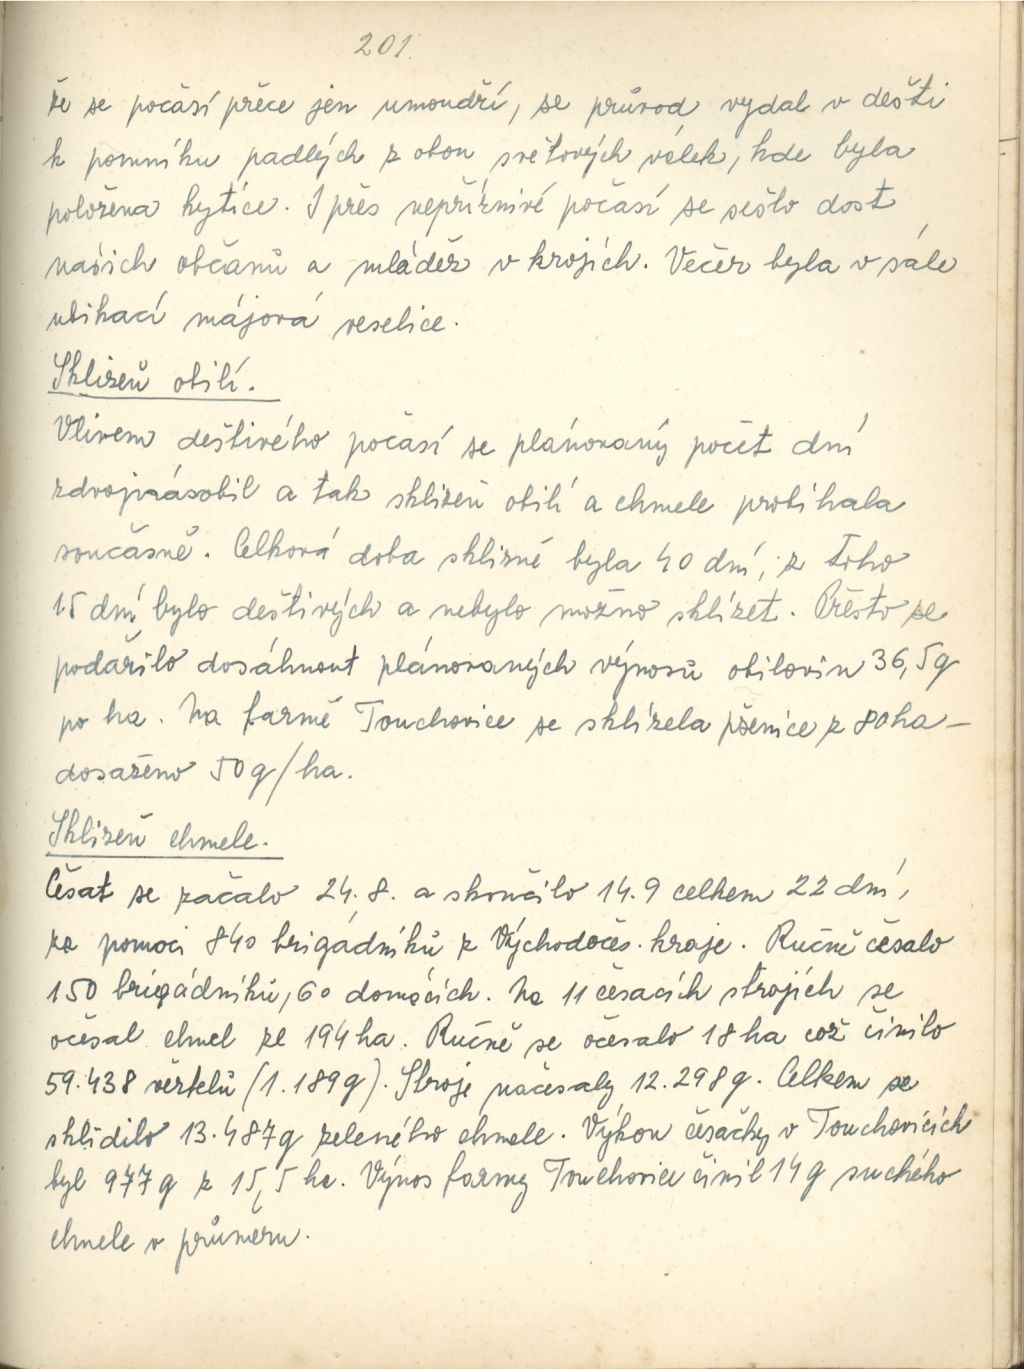 201.
že se počasí přece jen umoudří, se průvod vydal v dešti
k pomníku padlých z obou světových válek, kde byla
položena kytice. I přes nepříznivé počasí se sešlo dost
našich občanů a mládež v krojích. Večer byla v sále
ubikací májová veselice.
Sklizeň obilí.
Vlivem deštivého počasí se plánovaný počet dní
zdvojnásobil a tak sklizeň obilí a chmele probíhala
současně. Celková doba sklizně byla 40 dní, z toho
15 dní bylo deštivých a nebylo možno sklízet. Přesto se
podařilo dosáhnout plánovaných výnosů obilovin 36,5q
po ha. Na farmě Touchovice se sklízela pšenice z 80ha –
dosaženo 50q/ha.
Sklizeň chmele.
Česat se začalo 24.8. a skončilo 14.9 celkem 22 dní,
za pomoci 840 brigádníků z Východočes. kraje. Ručně česalo
150 brigádníků, 60 domácích. Na 11 česacích strojích se
očesal chmel ze 194ha. Ručně se očesalo 18ha což činilo
59.438 věrtelů (1.189q). Stroje načesaly 12.298q. Celkem se
sklidilo 13.487q zeleného chmele. Výkon česačky v Touchovicích
byl 977q z 15,5 ha. Výnos farmy Touchovice činil 14q suchého
chmele v průměru.